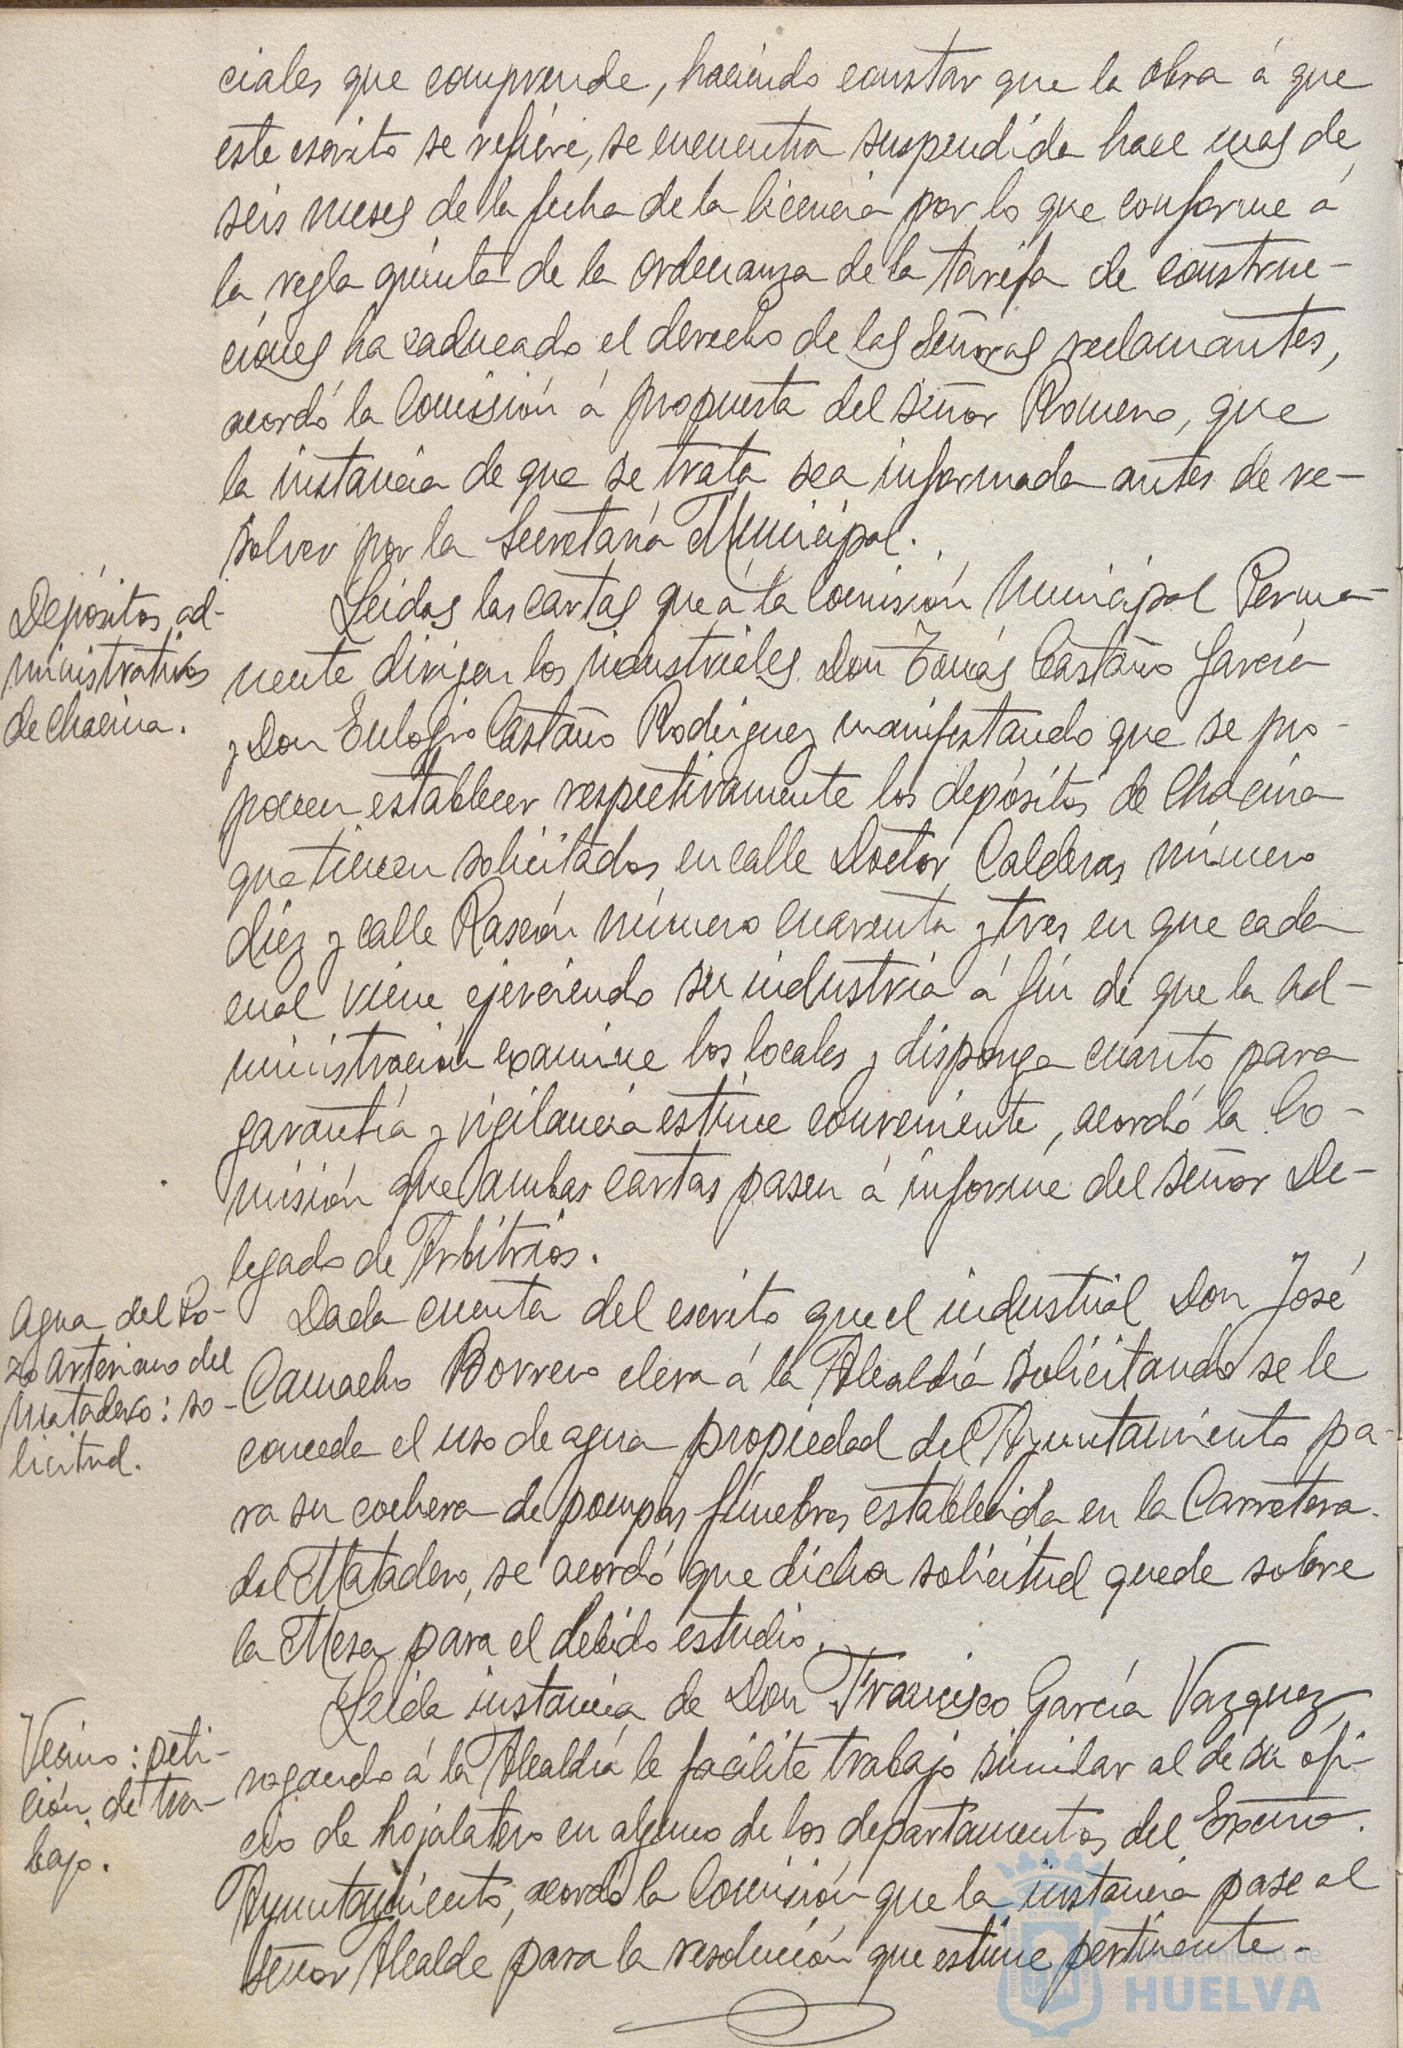 ciales que comprende, haciendo constar que la obra á que
este escrito se refiere, se encuentra suspendida hace mas de
seis meses de la fecha de la licencia por lo que conforme á
la regla quinta de la ordenanza de la tarifa de construc-
ciones ha caducado el derecho de las Señoras reclamantes,
acordó la Comisión á propuesta del señor Romero, que
la instancia de que se trata sea informada antes de re-
solver por la Secretaría Municipal.
Depósitos ad-
ministrativos
de chacina.
Leidas las cartas que á la Comisión Municipal Perma-
nente dirigen los industriales Don Tomás Castaño García
y Don Eulogio Castaño Rodriguez manifestando que se pro-
ponen establecer respectivamente los depósitos de Chacina
que tienen solicitados en calle Doctor Calderas número
diez y calle Rascón número cuarenta y tres en que cada
cual viene ejerciendo su industria á fin de que la ad-
ministración examine los locales y disponga cuanto para
garantía y vigilancia estime conveniente, acordó la Co-
misión que ambas cartas pasen á informe del señor De-
legado de Arbitrios.
Agua del Po-
zo Arteriano del
Matadero: so-
licitud.
Dada cuenta del escrito que el industrial Don José
Camacho Borrero eleva á la Alcaldía solicitando se le
conceda el uso de agua propiedad del Ayuntamiento pa-
ra su cochera de pompas fúnebres establecida en la Carretera
del Matadero, se acordó que dicha solicitud quede sobre
la Mesa para el debido estudio.
Vecino: peti-
ción de tra-
bajo.
Leida instancia de Don Francisco García Vazquez,
rogando á la Alcaldía le facilite trabajo similar al de su ofi-
cio de hojalatero en alguno de los departamentos del Excmo.
Ayuntamiento, acordó la Comisión que la instancia pase al
señor Alcalde para la resolución que estime pertinente.-
Ayuntamiento de
HUELVA